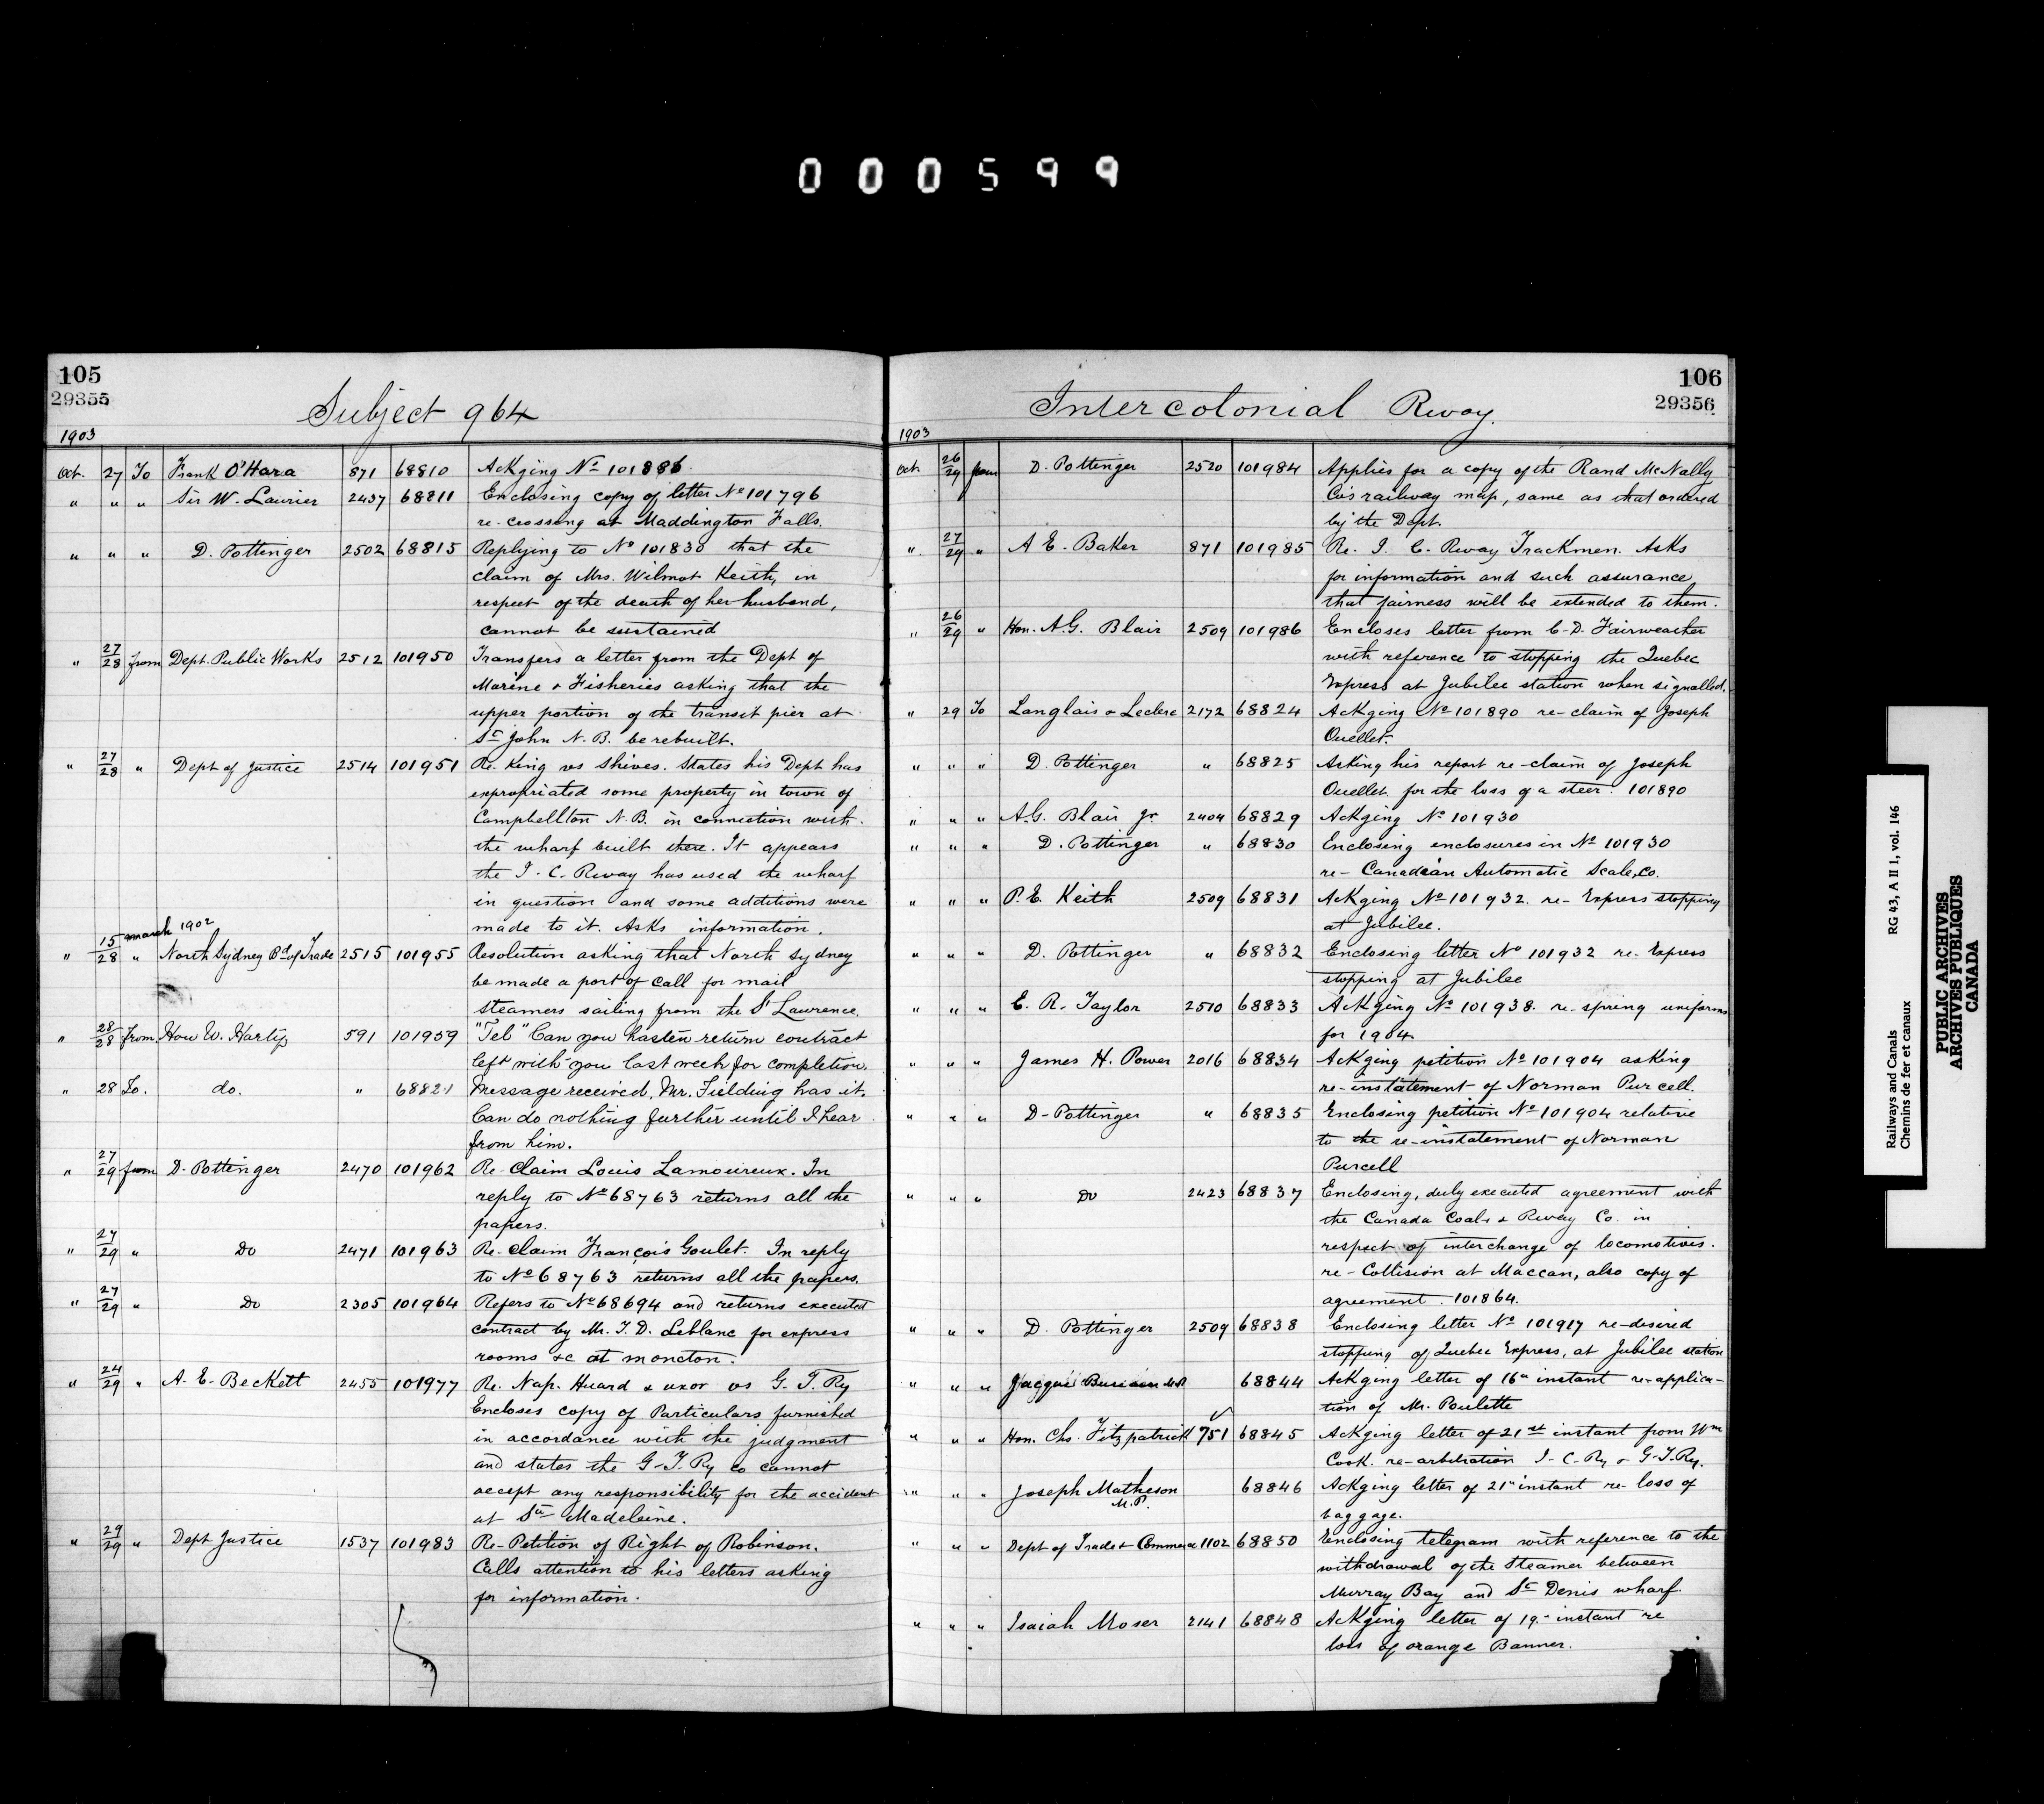 000599
105
29355
Subject 964
1903
Oct. 27 To Frank O'Hara 871 68810 Ackging No 101886
" " " Sir W. Laurier 2437 68811 Enclosing copy of letter No 101796
re-crossing at Maddington Falls.
" " " D. Pottinger 2502 68815 Replying to No 101830 that the
claim of Mrs. Wilmot Keith, in
respect of the death of her husband,
cannot be sustained
" 27/28 from Dept. Public Works 2512 101950 Transfers a letter from the Dept of
Marine & Fisheries asking that the
upper portion of the transit pier at
St John N.B. be rebuilt.
" 27/28 " Dept of Justice 2514 101951 Re. King vs Shives. States his Dept has
expropriated some property in town of
Campbellton N.B. in connection with
the wharf built there. It appears
the I. C. Rway has used the wharf
in question and some additions were
made to it. Asks information.
15 March 1902
" 28 " North Sydney Bd of Trade 2515 101955 Resolution asking that North Sydney
be made a port of call for mail
steamers sailing from the St Lawrence.
" 28/28 from Hon W. Harty 591 101959 "Tel" Can you hasten return contract
left with you last week for completion.
" 28 To. do. " 68821 Message received, Mr. Fielding has it.
Can do nothing further until I hear
from him.
" 27/29 from D. Pottinger 2470 101962 Re-claim Louis Lamoureux. In
reply to No 68763 returns all the
papers.
" 27/29 " Do 2471 101963 Re-claim François Goulet. In reply
to No 68763 returns all the papers.
" 27/29 " Do 2305 101964 Refers to No 68694 and returns executed
contract by Mr. T. D. Leblanc for express
rooms &c at Moncton.
" 24/29 " A. E. Beckett 2455 101977 Re. Nap. Huard & uxor vs G. T. Ry
Encloses copy of Particulars furnished
in accordance with the judgment
and states the G-T. Ry co cannot
accept any responsibility for the accident
at Ste Madeleine.
" 29/29 " Dept Justice 1537 101983 Re-Petition of Right of Robinson.
Calls attention to his letters asking
for information.
106
29356
Intercolonial Rway.
1903
Oct. 26/29 from D. Pottinger 2520 101984 Applies for a copy of the Rand McNally
Co's railway map, same as that ordered
by the Dept.
" 27/29 " A E. Baker 871 101985 Re. I. C. Rway Trackmen. Asks
for information and such assurance
that fairness will be extended to them.
" 26/29 " Hon. A.G. Blair 2509 101986 Encloses letter from C. D. Fairweather
with reference to stopping the Quebec
Express at Jubilee station when signalled.
" 29 To Langlais & Leclerc 2172 68824 Ackging No 101890 re-claim of Joseph
Ouellet.
" " " D. Pottinger " 68825 Asking his report re-claim of Joseph
Ouellet for the loss of a steer. 101890
" " " A.G. Blair Jr. 2404 68829 Ackging No 101930
" " " D. Pottinger " 68830 Enclosing enclosures in No 101930
re- Canadian Automatic Scale, Co.
" " " P. E. Keith 2509 68831 Ackging No 101932. re- Express stopping
at Jubilee.
" " " D. Pottinger " 68832 Enclosing letter No 101932 re-Express
stopping at Jubilee
" " " E. R. Taylor 2510 68833 Ackging No 101938. re-spring uniforms
for 1904
" " " James H. Power 2016 68834 Ackging petition No 101904 asking
re-instatement of Norman Purcell.
" " " D-Pottinger " 68835 Enclosing petition No 101904 relative
to the re-instatement of Norman
Purcell
" " " Do 2423 68837 Enclosing, duly executed agreement with
the Canada Coals & Rway Co. in
respect of interchange of locomotives.
re-Collision at Maccan, also copy of
agreement. 101864.
" " " D. Pottinger 2509 68838 Enclosing letter No 101917 re-desired
stopping of Quebec Express, at Jubilee station
" " " Jacques Bureau M.P. 68844 Ackging letter of 16th instant re-applica-
tion of Mr. Poulette
" " " Hon. Chs. Fitzpatrick 751 68845 Ackging letter of 21st instant from Wm
Cook. re-arbitration I-C-Ry & G-T.Ry.
" " " Joseph Matheson 68846 Ackging letter of 21st instant re-loss of
M.P.
baggage.
" " " Dept of Trade & Commerce 1102 68850 Enclosing telegram with reference to the
withdrawal of the Steamer between
Murray Bay and St Denis wharf.
" " " Isaiah Moser 2141 68848 Ackging letter of 19th instant re
loss of orange Banner.
Railways and Canals RG 43, A II 1, vol. 146
Chemins de fer et canaux
PUBLIC ARCHIVES
ARCHIVES PUBLIQUES
CANADA